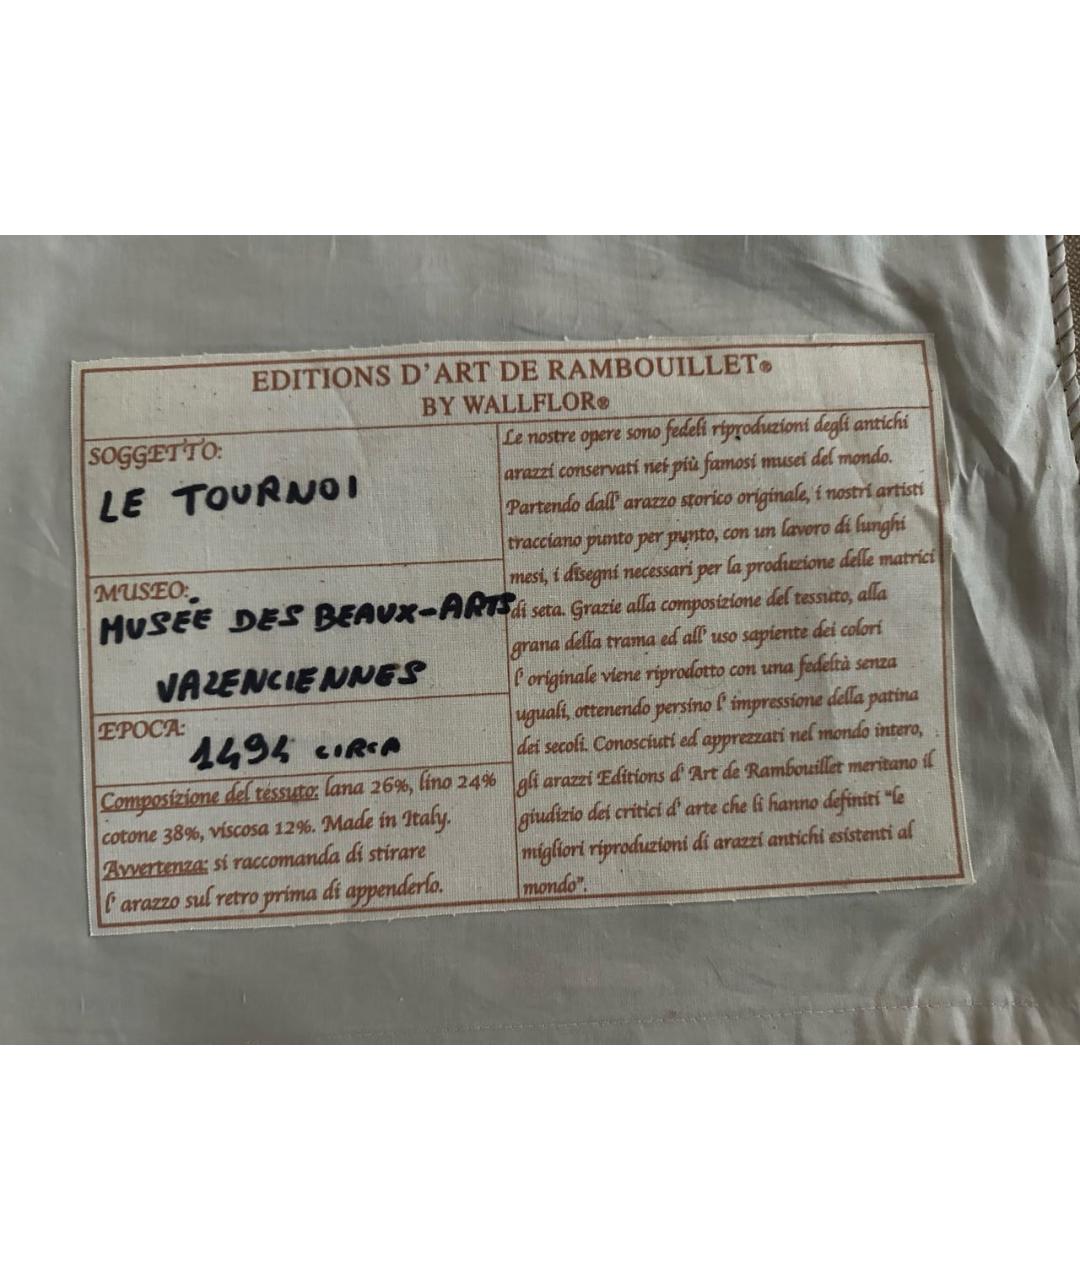 EDITIONS D'ART DE RAMBOUILLET®
BY WALLFLOR®
SOGGETTO:
LE TOURNOI
MUSEO:
MUSÉE DES BEAUX-ARTS
VALENCIENNES
EPOCA:
1494 CIRCA
Composizione del tessuto: lana 26%, lino 24%
cotone 38%, viscosa 12%. Made in Italy.
Avvertenza: si raccomanda di stirare
l'arazzo sul retro prima di appenderlo.
Le nostre opere sono fedeli riproduzioni degli antichi
arazzi conservati nei più famosi musei del mondo.
Partendo dall' arazzo storico originale, i nostri artisti
tracciano punto per punto, con un lavoro di lunghi
mesi, i disegni necessari per la produzione delle matrici
di seta. Grazie alla composizione del tessuto, alla
grana della trama ed all' uso sapiente dei colori
l' originale viene riprodotto con una fedeltà senza
uguali, ottenendo persino l' impressione della patina
dei secoli. Conosciuti ed apprezzati nel mondo intero,
gli arazzi Editions d' Art de Rambouillet meritano il
giudizio dei critici d' arte che li hanno definiti "le
migliori riproduzioni di arazzi antichi esistenti al
mondo".